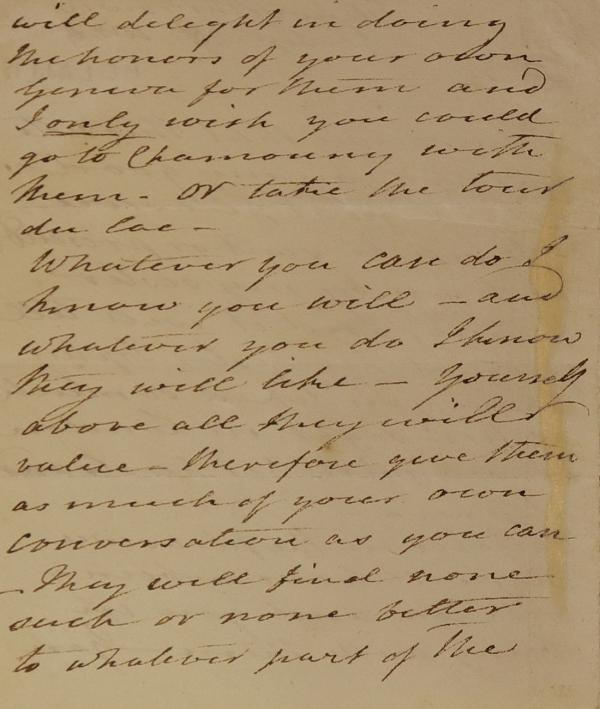 will delight in doing
the honors of your own
Geneva for them and
I only wish you could
go to Chamouny with
them - or take the tour
du lac -
Whatever you can do I
know you will - and
whatever you do I know
they will like - Yourself
above all they will
value - therefore give them
as much of your own
conversation as you can
- They will find none
such or none better
to whatever part of the